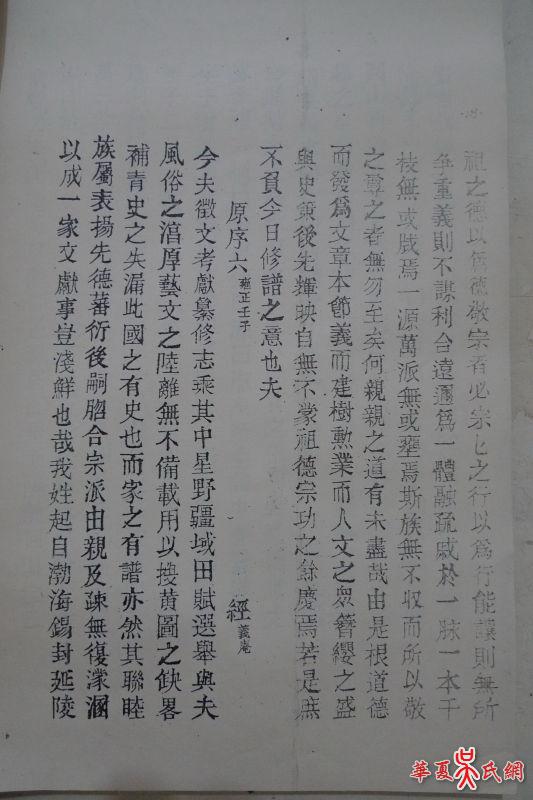 祖之德以為德敬宗者必宗七之行以為行能讓則無所
爭重義則不謀利合遠邇爲一體融疏戚於一脉一本千
枝無或戕焉一源萬派無或壅焉斯族無不収而所以敬
之尊之者無勿至矣何親親之道有未盡哉由是根道德
而發爲文章本節義而建樹勲業而人文之衆簪纓之盛
與史策後先輝映自無不蒙祖德宗功之餘慶焉若是庶
不負今日修譜之意也夫
原序六 雍正壬子 經 義庵
今夫徵文考獻纂修志乘其中星野疆域田賦選舉與夫
風俗之涫厚藝文之陸離無不備載用以搜黄圖之缺畧
補青史之失漏此國之有史也而家之有譜亦然其聯睦
族屬表揚先德蕃衍後嗣脗合宗派由親及疎無復濛溷
以成一家文獻事豈淺鮮也哉我姓起自渤海錫封延陵
華夏吴氏網